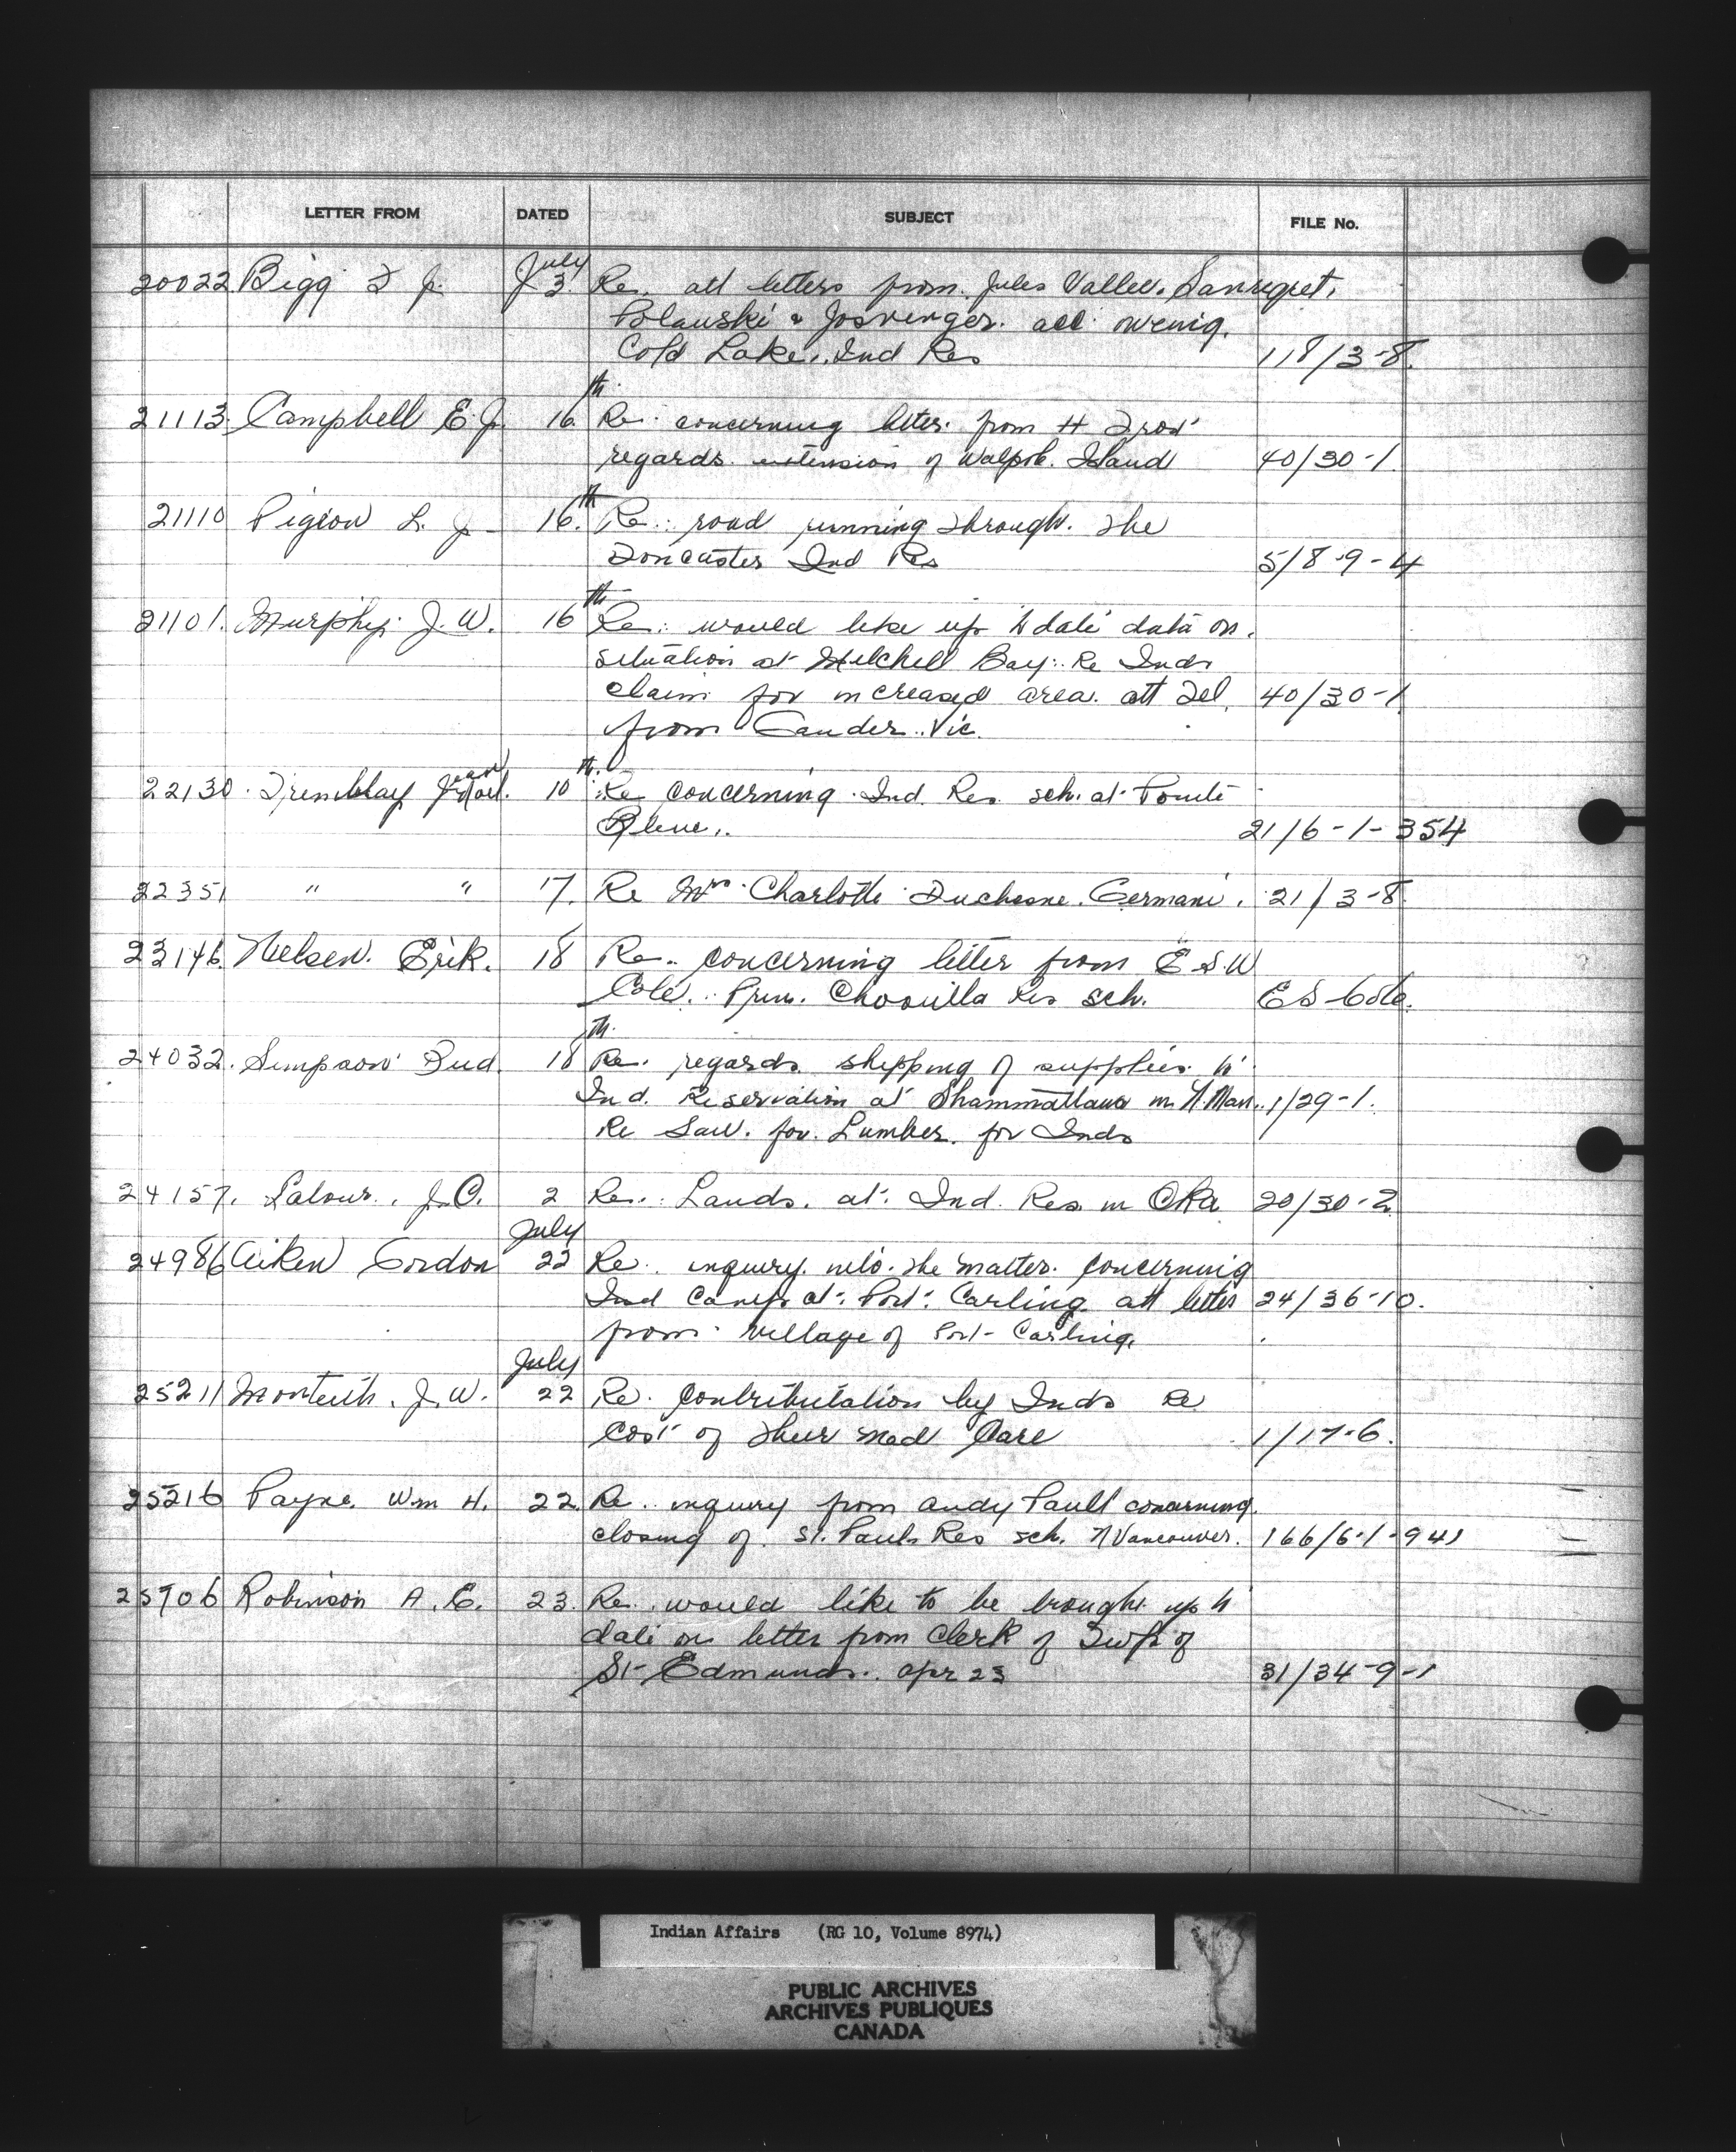 LETTER FROM DATED SUBJECT FILE No.
July
20022 Bigg F J. 3. Re. att letters from. Jules Vallee.
Polanski & Josvenger. acc owing.
Cold Lake, Ind Res 118/3-8.
th
21113. Campbell E. J. 16 Re: concerning letter. from H
regards. extension of Walpole. Island 40/30-1.
th
21110 Pigeon L. J 16. Re: road running through. the
Doncaster Ind Res 5/8-9-4
th
21101. Murphy. J. W. 16 Re: would like up to date data on.
situation at Mitchell Bay: Re Inds
claim for increased area. att Tel. 40/30-1
from Gander. Vic.
th.
22130. Tremblay Jean Noel. 10 Re concerning. Ind. Res. sch. at Pointe
Bleue,. 21/6-1-354
22351 " " 17. Re Mrs. Charlotte Duchesne. Germain. 21/3-8
23146. Nielsen. Erik. 18 Re.. concerning letter from E S. W
Cole. Prin. Chooutla Res sch. E S Cole.
th.
24032. Simpson Bud. 18 Re. regards. shipping of supplies. to
Ind. Reservation at Shammattawa in N. Man. 1/29-1.
Re Saw. for. Lumber. for Inds
24157. Latour., J. O. 2 Re.: Lands. at. Ind. Res. in OKa 20/30-2
July
24986 Aiken Gordon 22 Re. inquiry. into. the matter. concerning
Ind Camp at. Port. Carling. att letter 24/36-10.
from. village of Port-Carling.
July
25211 Monteith. J. W. 22 Re. contributation by Inds Re
cost of their med Care 1/17-6.
25216 Payne. Wm H. 22. Re. inquiry from Andy Paull concerning.
closing of. St. Pauls Res sch. N Vancouver. 166/6-1-941
25706 Robinson A. E. 23. Re. would like to be brought up to
date on letter from Clerk of Twp. of
St-Edmunds. Apr 23 31/34-9-1
Indian Affairs (RG 10, Volume 8974)
PUBLIC ARCHIVES
ARCHIVES PUBLIQUES
CANADA